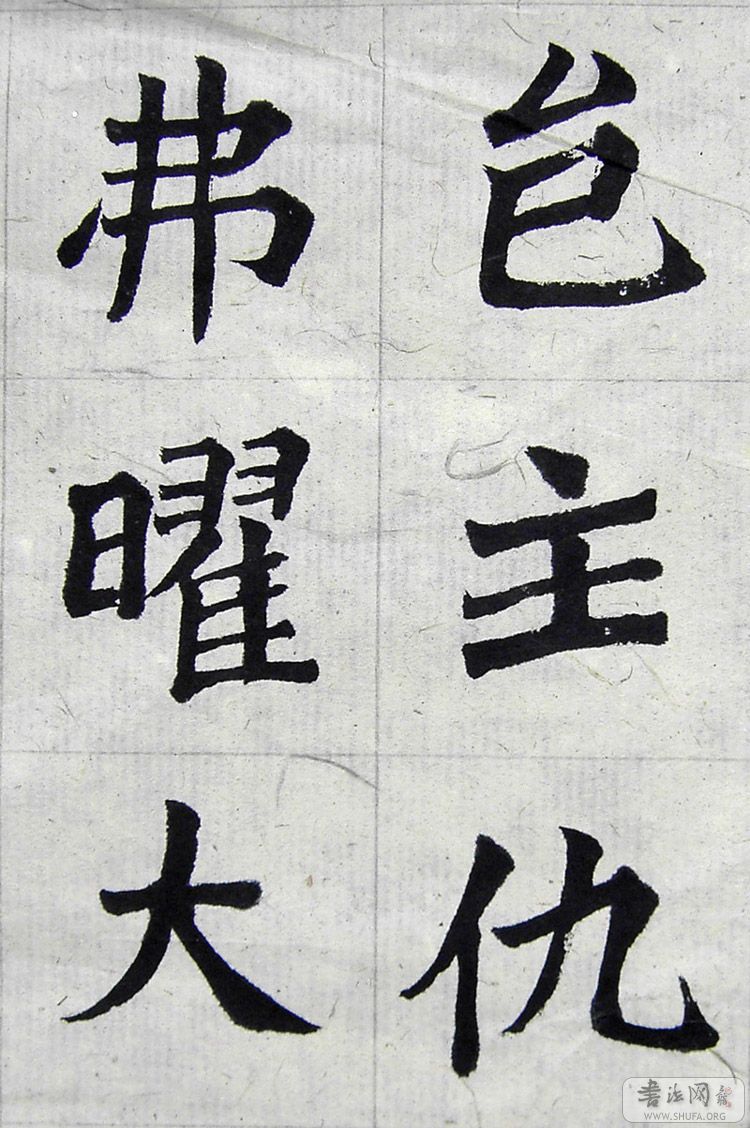 邑主仇
弗曜大
書法网
WWW.SHUFA.ORG